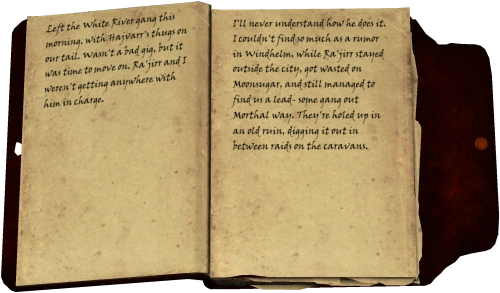 Left the White River gang this
morning, with Hajvarr's thugs on
our tail. Wasn't a bad gig, but it
was time to move on. Ra'jirr and I
weren't getting anywhere with
him in charge.
I'll never understand how he does it.
I couldn't find so much as a rumor
in Windhelm, while Ra'jirr stayed
outside the city, got wasted on
Moonsugar, and still managed to
find us a lead- some gang out
Morthal way. They're holed up in
an old ruin, digging it out in
between raids on the caravans.